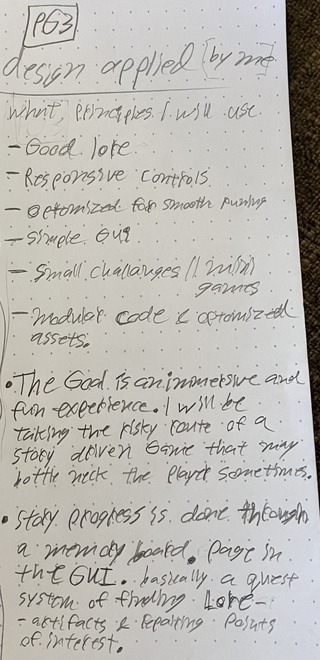 PG3
design applied [by me]
what, principles I will use.
- Good lore
- Responsive controls
- optomized for smooth runing
- Simple GUI
- Small challanges // mini
games
- modular code & optomized
assets.
• The Goal is an immersive and
fun experience. I will be
taking the risky route of a
story driven game that may
bottle neck the player sometimes.
• Story progress is done through
a memory board. page in
the GUI. basically a quest
system of finding Lore-
- artifacts & repairing points
of interest.